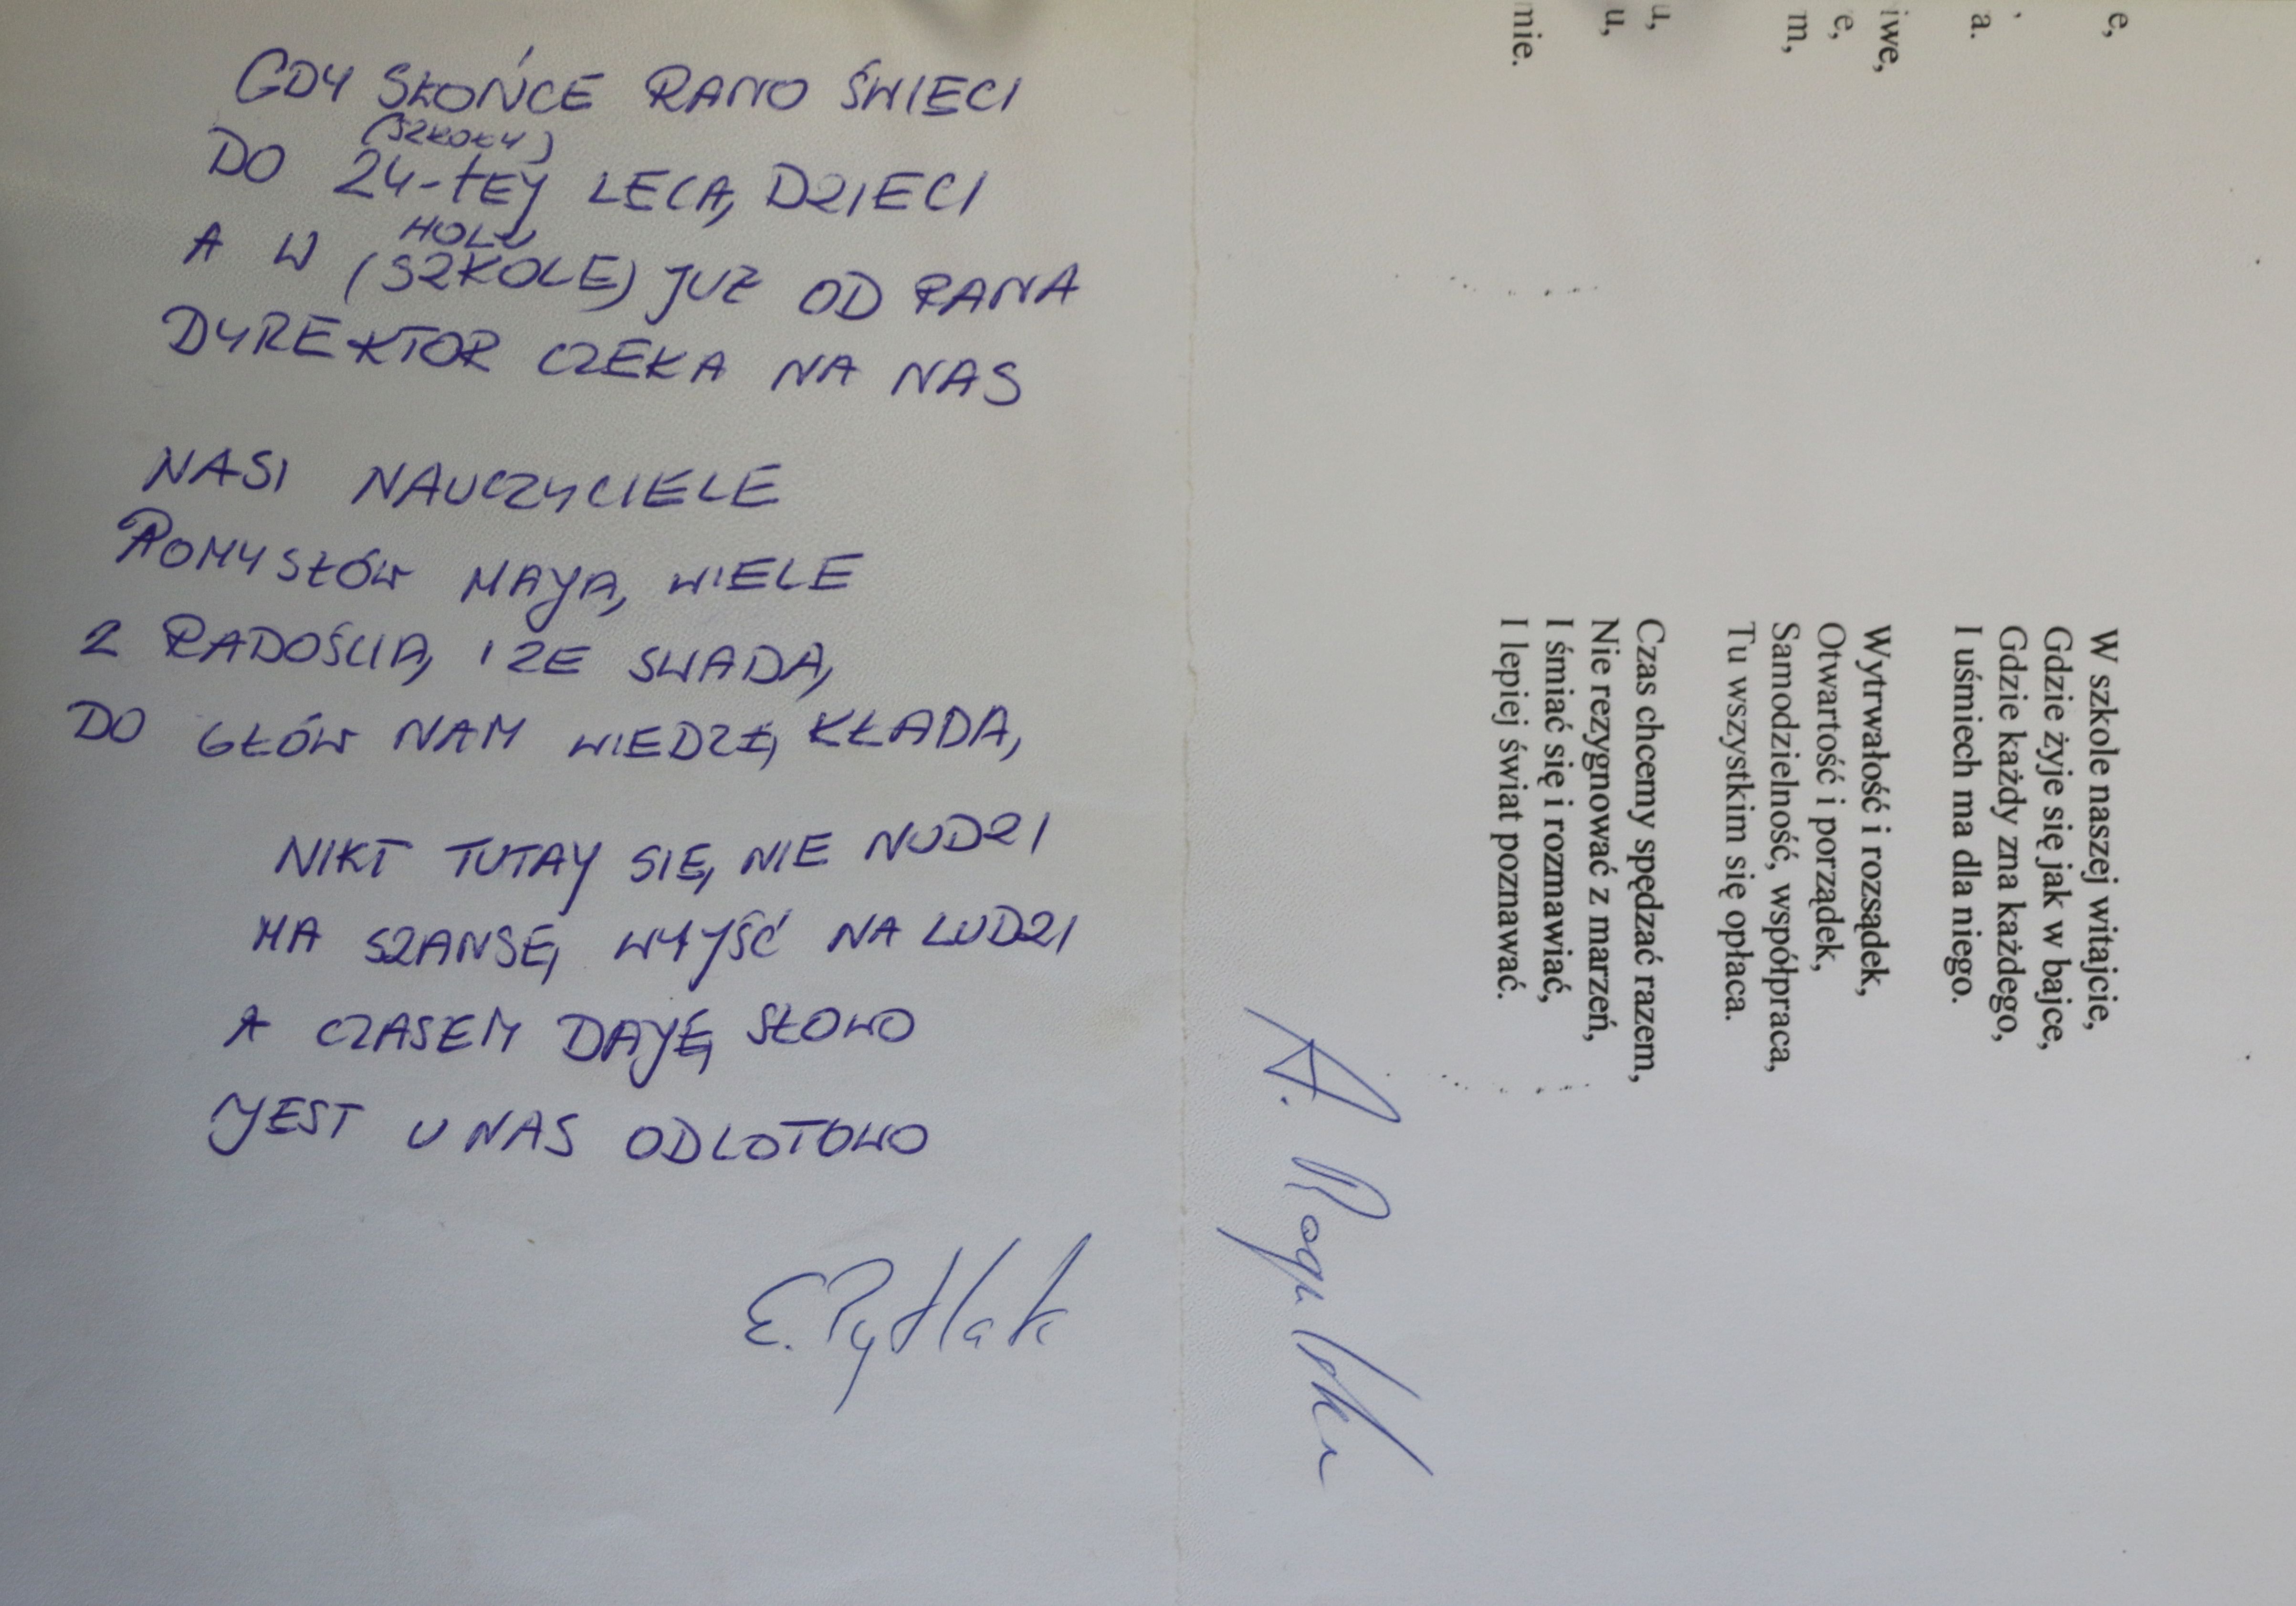 GDY SŁOŃCE RANO ŚWIECI
(SZKOŁY)
DO 24-tEJ LECĄ DZIECI
HOLU
A W (SZKOLE) JUŻ OD RANA
DYREKTOR CZEKA NA NAS
NASI NAUCZYCIELE
POMYSŁÓW MAJĄ WIELE
Z RADOŚCIĄ I ZE SWADĄ
DO GŁÓW NAM WIEDZĘ KŁADĄ
NIKT TUTAJ SIĘ NIE NUDZI
MA SZANSĘ WYJŚĆ NA LUDZI
A CZASEM DAJĘ SŁOWO
JEST U NAS ODLOTOWO
E. Pytlak
e,
,
a.
iwe,
e,
m,
u,
u,
mnie.
W szkole naszej witajcie,
Gdzie żyje się jak w bajce,
Gdzie każdy zna każdego,
I uśmiech ma dla niego.
Wytrwałość i rozsądek,
Otwartość i porządek,
Samodzielność, współpraca,
Tu wszystkim się opłaca.
Czas chcemy spędzać razem,
Nie rezygnować z marzeń,
I śmiać się i rozmawiać,
I lepiej świat poznawać.